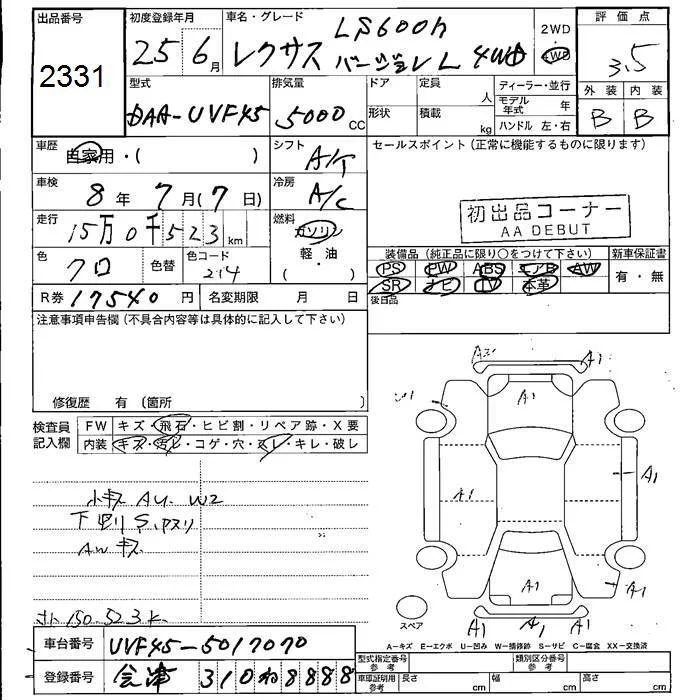 出品番号 初度登録年月 車名・グレード 2WD 評価点
2331 25 6月 レクサス LS600h 4WD 3.5
バージョンL 4WD
型式 排気量 ドア 定員 人 ディーラー・並行 外装 内装
DAA-UVF45 5000 CC 形状 積載 kg モデル年式 年 B B
ハンドル 左・右
車歴 自家用・( ) シフト A/T セールスポイント(正常に機能するものに限ります)
車検 8年 7月(7日) 冷房 A/C 初出品コーナー
AA DEBUT
走行 15万0千523km 燃料 ガソリン
軽・油
( )
装備品(純正品に限り○をつけて下さい) 新車保証書
色 クロ 色替 色コード 214 PS PW ABS エアB AW 有・無
SR ナビ TV 本革
R券 17540円 名変期限 月 日 後日品
注意事項申告欄(不具合内容等は具体的に記入して下さい)
修復歴 有(箇所
検査員記入欄 FW キズ・飛石・ヒビ割・リペア跡・X要
内装 キズ・汚れ・コゲ・穴・スレ・キレ・破レ
小キズ AU. W2
下廻り S.
AW キズ
150.523K
A1
A1
A1
A1
A1
A1
A1 A1 A1
スペア
A-キズ E-エクボ U-凹み W-補修跡 S-サビ C-腐食 XX-交換済
車台番号 UVF45-5017070
登録番号 会津 310 ね 8888
型式指定番号 参考 類別区分番号 参考
車庫証明用 参考 長さ cm 幅 cm 高さ cm